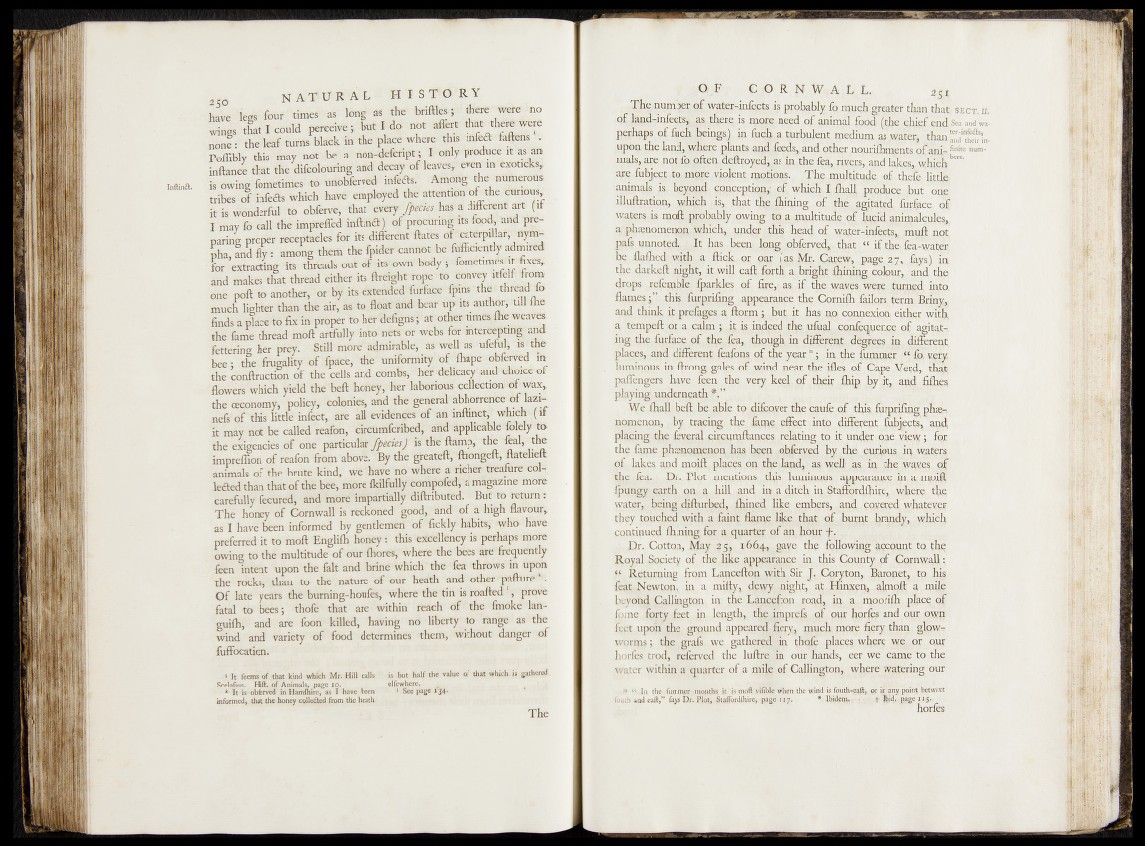 250 NATURAL HISTORY
have legs four times as long as the briſtles; there were no
wings that I could perceive; but I do not aſſert that there were
none: the leaf turns black in the place where this inſect faſtens.
Poſſibly this may not be a non-deſcript; I only produce it as an
inſtance that the diſcolouring and decay of leaves, even in exoticks,
Inſtinct.
is owing ſometimes to unobſerved inſects. Among the numerous
tribes of inſects which have employed the attention of the curious,
it is wonderful to obſerve, that every ſpecies has a different art (if
I may ſo call the impreſſed inſtinct) of procuring its food, and pre-
paring proper receptacles for its different ſtates of caterpillar, nym-
pha, and fly: among them the ſpider cannot be ſufficiently admired
for extracting its threads out of its own body; ſometimes it fixes,
and makes that thread either its ſtreight rope to convey itſelf from
one poſt to another, or by its extended ſurface ſpins the thread ſo
much lighter than the air, as to float and bear up its author, till ſhe
finds a place to fix in proper to her deſigns; at other times ſhe weaves
the ſame thread moſt artfully into nets or webs for intercepting and
fettering her prey. Still more admirable, as well as uſeful, is the
bee; the frugality of ſpace, the uniformity of ſhape obſerved in
the conſtruction of the cells and combs, her delicacy and choice of
flowers which yield the beſt honey, her laborious collection of wax,
the œconomy, policy, colonies, and the general abhorrence of lazi-
neſs of this little inſect, are all evidences of an inſtinct, which (if
it may not be called reaſon, circumſcribed, and applicable ſolely to
the exigencies of one particular ſpecies) is the ſtamp, the ſeal, the
impreſſion of reaſon from above. By the greateſt, ſtrongeſt, ſtatelieſt
animals of the brute kind, we have no where a richer treaſure col-
lected than that of the bee, more ſkilfully compoſed, a magazine more
carefully ſecured, and more impartially diſtributed. But to return:
The honey of Cornwall is reckoned good, and of a high flavour,
as I have been informed by gentlemen of ſickly habits, who have
preferred it to moſt Engliſh honey: this excellency is perhaps more
owing to the multitude of our ſhores, where the bees are frequently
ſeen intent upon the ſalt and brine which the ſea throws in upon
the rocks, than to the nature of our heath and other paſture ᵏ.
Of late years the burning-houſes, where the tin is roaſted ˡ, prove
fatal to bees; thoſe that are within reach of the ſmoke lan-
guiſh, and are ſoon killed, having no liberty to range as the
wind and variety of food determines them, without danger of
ſuffocation.
ⁱ It ſeems of that kind which Mr. Hill calls
Hiſt. of Animals, page 10.
ᵏ It is obſerved in Hamſhire, as I have been
informed, that the honey collected from the heath
is but half the value of that which is gathered
elſewhere.
ˡ See page 134.
The
OF CORNWALL. 251
The number of water-inſects is probably ſo much greater than that SECT. II.
of land-inſects, as there is more need of animal food (the chief end Sea and wa-
perhaps of ſuch beings) in ſuch a turbulent medium as water, than ter-inſects,
upon the land, where plants and ſeeds, and other nouriſhments of ani- and their in-
mals, are not ſo often deſtroyed, as in the ſea, rivers, and lakes, which finite num-
are ſubject to more violent motions. The multitude of theſe little bers.
animals is beyond conception, of which I ſhall produce but one
illuſtration, which is, that the ſhining of the agitated ſurface of
waters is moſt probably owing to a multitude of lucid animalcules,
a phænomenon which, under this head of water-inſects, muſt not
paſs unnoted. It has been long obſerved, that “ if the ſea-water
be ſlaſhed with a ſtick or oar (as Mr. Carew, page 27, ſays) in
the darkeſt night, it will caſt forth a bright ſhining colour, and the
drops reſemble ſparkles of fire, as if the waves were turned into
flames;” this ſurpriſing appearance the Corniſh ſailors term Briny,
and think it preſages a ſtorm; but it has no connexion either with
a tempeſt or a calm; it is indeed the uſual conſequence of agitat-
ing the ſurface of the ſea, though in different degrees in different
places, and different ſeaſons of the year ᵐ; in the ſummer “ ſo very
luminous in ſtrong gales of wind near the iſles of Cape Verd, that
paſſengers have ſeen the very keel of their ſhip by it, and fiſhes
playing underneath *.”
We ſhall beſt be able to diſcover the cauſe of this ſurpriſing phæ-
nomenon, by tracing the ſame effect into different ſubjects, and
placing the ſeveral circumſtances relating to it under one view; for
the ſame phænomenon has been obſerved by the curious in waters
of lakes and moiſt places on the land, as well as in the waves of
the ſea. Dr. Plot mentions this luminous appearance in a moiſt
ſpungy earth on a hill and in a ditch in Staffordſhire, where the
water, being diſturbed, ſhined like embers, and covered whatever
they touched with a faint flame like that of burnt brandy, which
continued ſhining for a quarter of an hour †.
Dr. Cotton, May 25, 1664, gave the following account to the
Royal Society of the like appearance in this County of Cornwall:
“ Returning from Lanceſton with Sir J. Coryton, Baronet, to his
ſeat Newton, in a miſty, dewy night, at Hinxen, almoſt a mile
beyond Callington in the Lanceſton road, in a mooriſh place of
ſome forty feet in length, the impreſs of our horſes and our own
feet upon the ground appeared fiery, much more fiery than glow-
worms; the graſs we gathered in thoſe places where we or our
horſes trod, reſerved the luſtre in our hands, ter we came to the
water within a quarter of a mile of Callington, where watering our
ᵐ “ In the ſummer months it is moſt viſible when the wind is ſouth-eaſt, or in any point betwixt
ſouth and eaſt,” ſays Dr. Plot, Staffordſhire, page 117. * Ibidem. † Ibid. page 115.
horſes